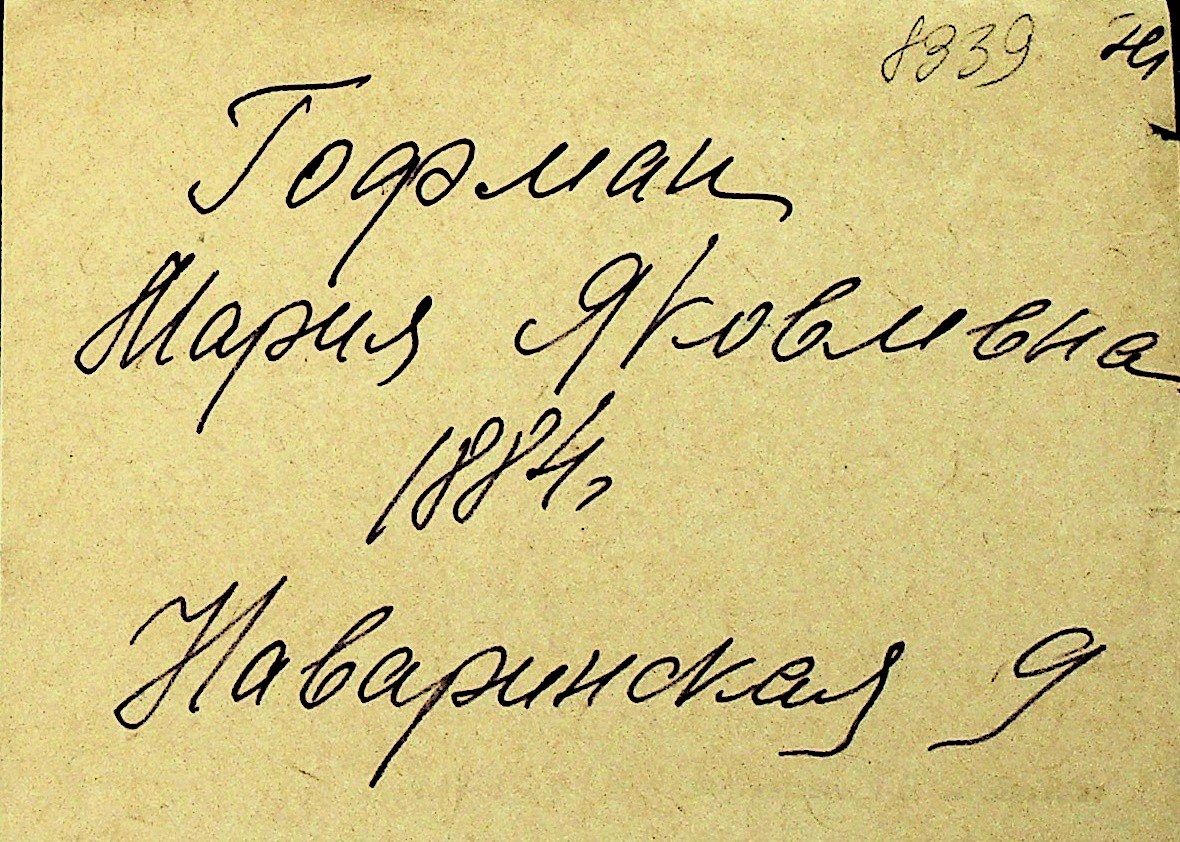 8339
Гофман
Мария Яковлевна
1884,
Наваринская 9